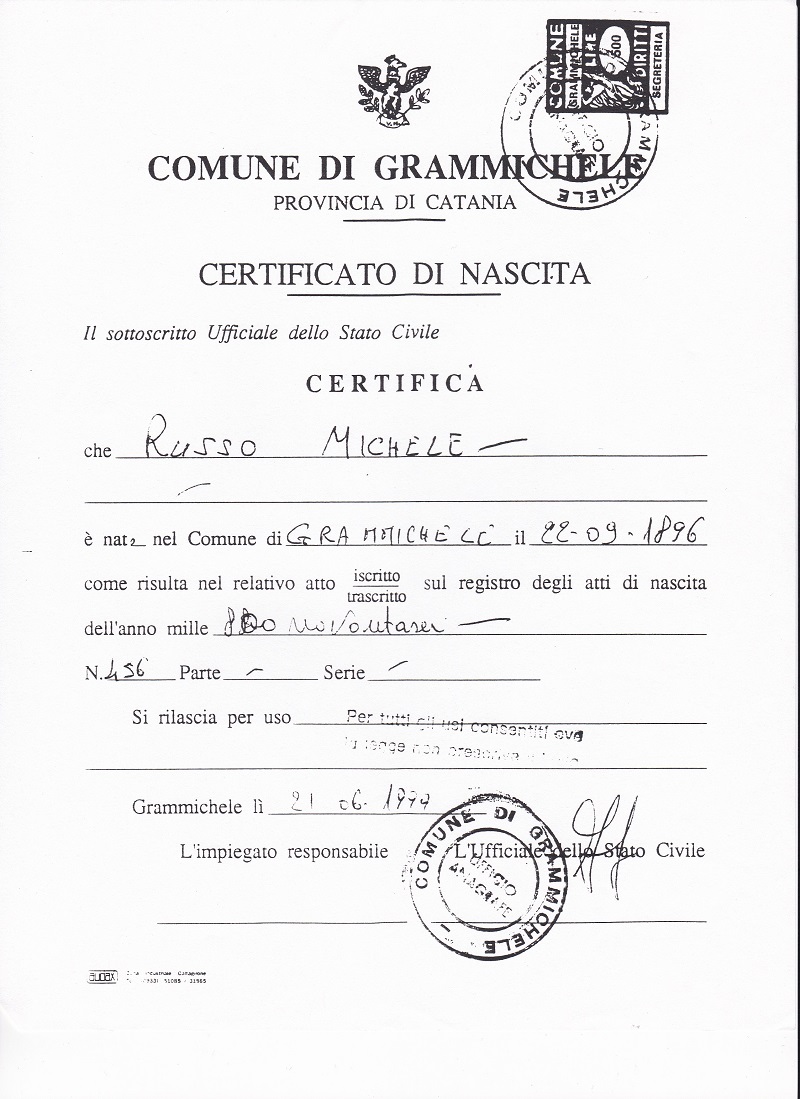 COMUNE
GRAMMICHELE
LIRE
500
DIRITTI
SEGRETERIA
COMUNE DI GRAMMICHELE
PROVINCIA DI CATANIA
CERTIFICATO DI NASCITA
Il sottoscritto Ufficiale dello Stato Civile
CERTIFICA
che RUSSO MICHELE —
è nat nel Comune di GRAMMICHELE il 22-09-1896
come risulta nel relativo atto iscritto sul registro degli atti di nascita
trascritto
dell'anno mille
N. 456 Parte — Serie —
Si rilascia per uso Per tutti gli usi consentiti ove
la legge non
Grammichele lì 21 06. 1999
L'impiegato responsabile L'Ufficiale dello Stato Civile
COMUNE DI GRAMMICHELE
UFFICIO
ANAGRAFE
audax